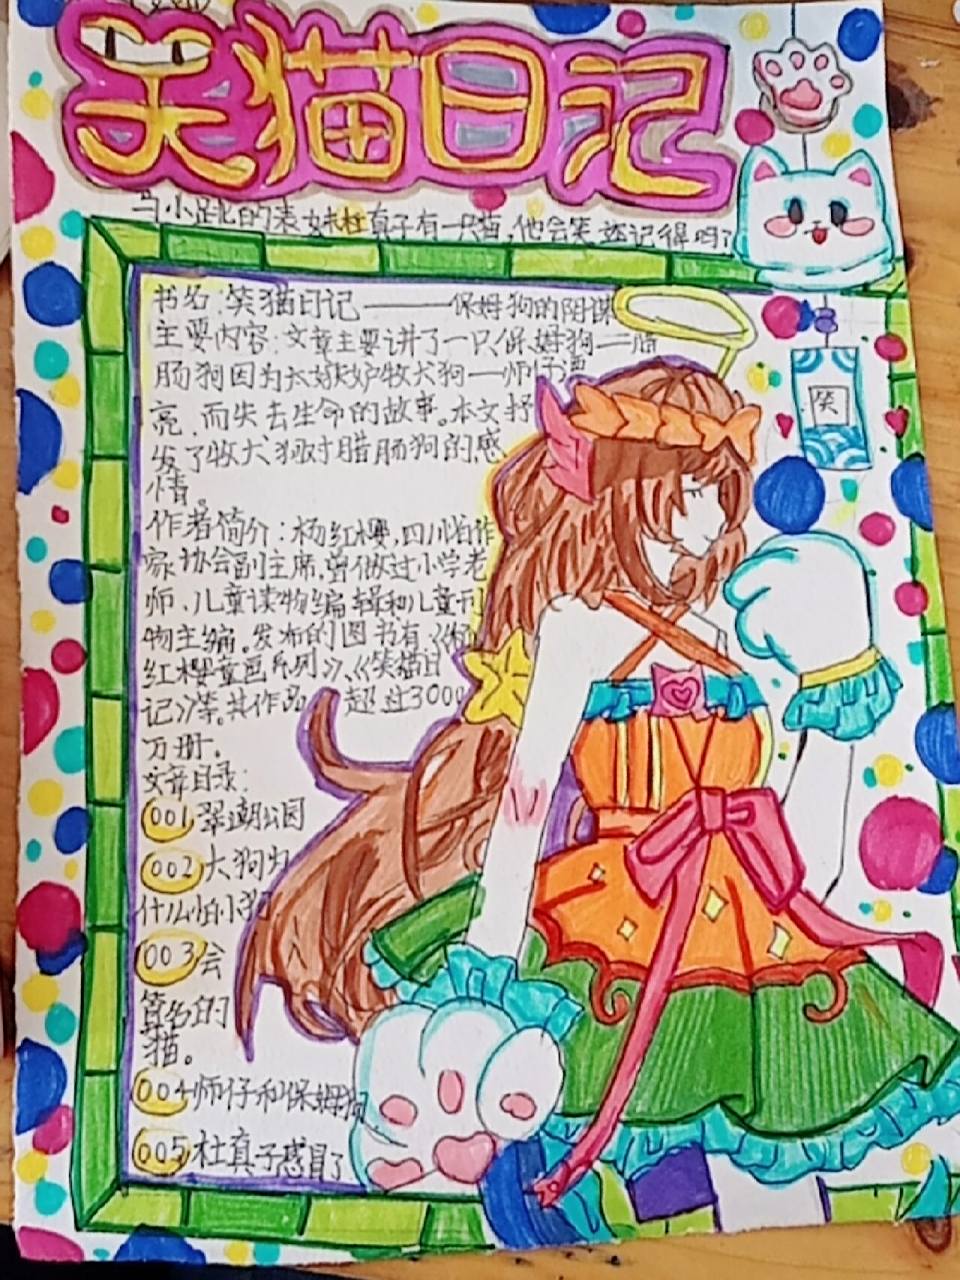 笑猫日记
马小跳的表妹杜真子有一只猫,他会笑还记得吗?
书名:笑猫日记——保姆狗的阴谋
主要内容:文章主要讲了一只保姆狗——腊
肠狗因为太嫉妒牧犬狗——师仔漂
亮,而失去生命的故事。本文抒
发了牧犬狗对腊肠狗的感
情。
作者简介:杨红樱,四川省作
家协会副主席,曾做过小学老
师、儿童读物编辑和儿童刊
物主编。发布的图书有《杨
红樱童画系列》、《笑猫日
记》等。其作品 超过3000
万册。
文章目录:
001 翠湖公园
002 大狗为
什么怕小狗
003 会
算名的
猫。
004 师仔和保姆狗
005 杜真子感冒了
笑